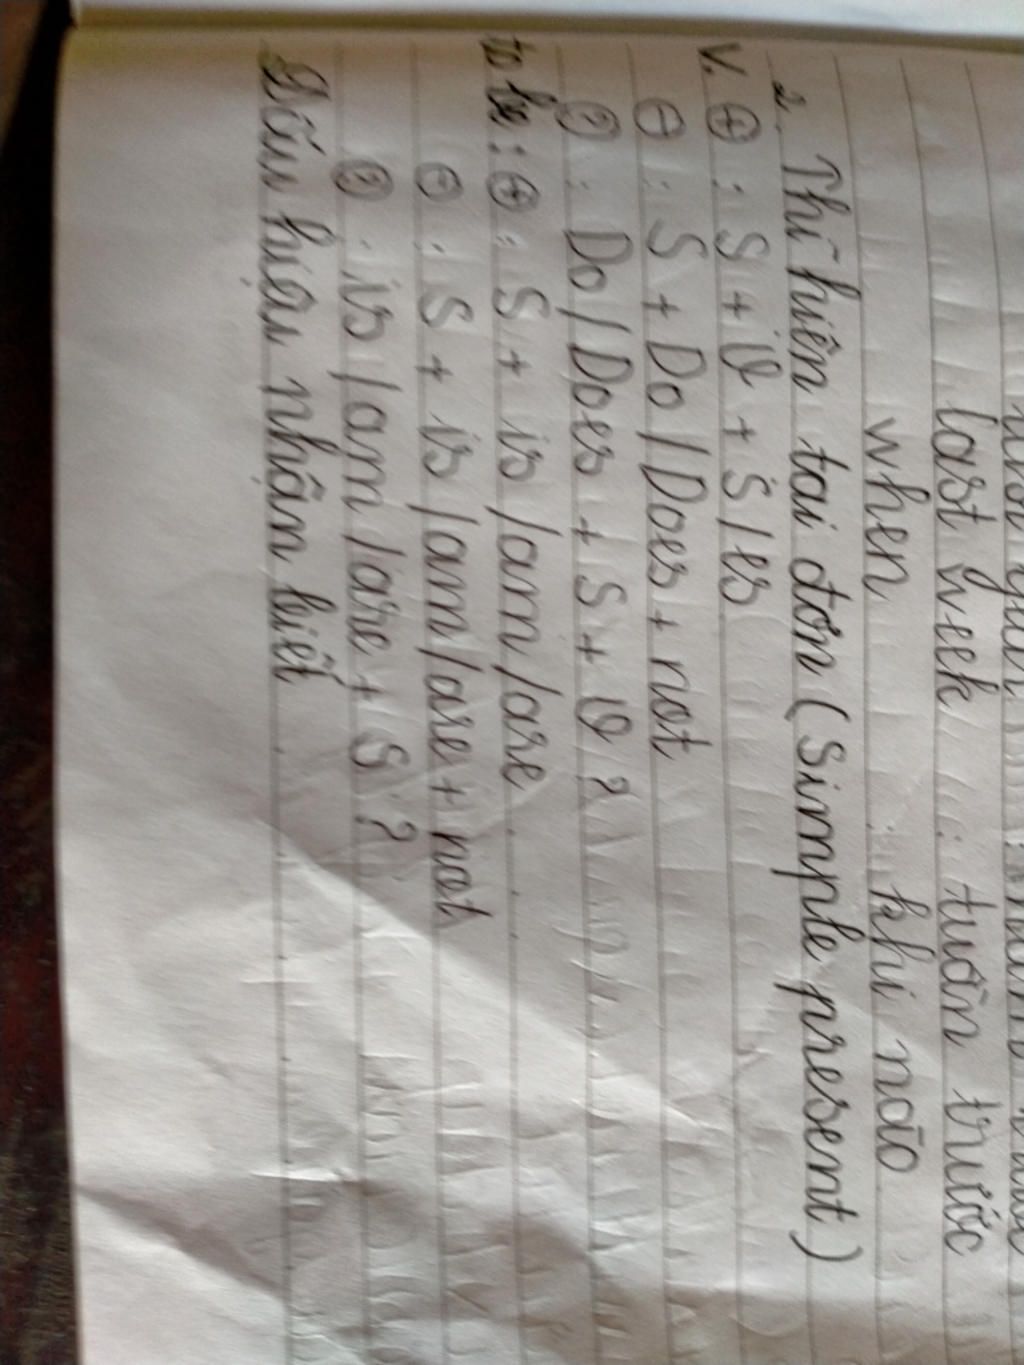 last week : tuần trước
when : khi nào
2. Thì hiện tại đơn (Simple present)
V. ⊕ : S + V + S/es
⊖ : S + Do/Does + not
? : Do/Does + S + V ?
to be : ⊕ : S + is/am/are
⊖ : S + is/am/are + not
? : is/am/are + S ?
Dấu hiệu nhận biết